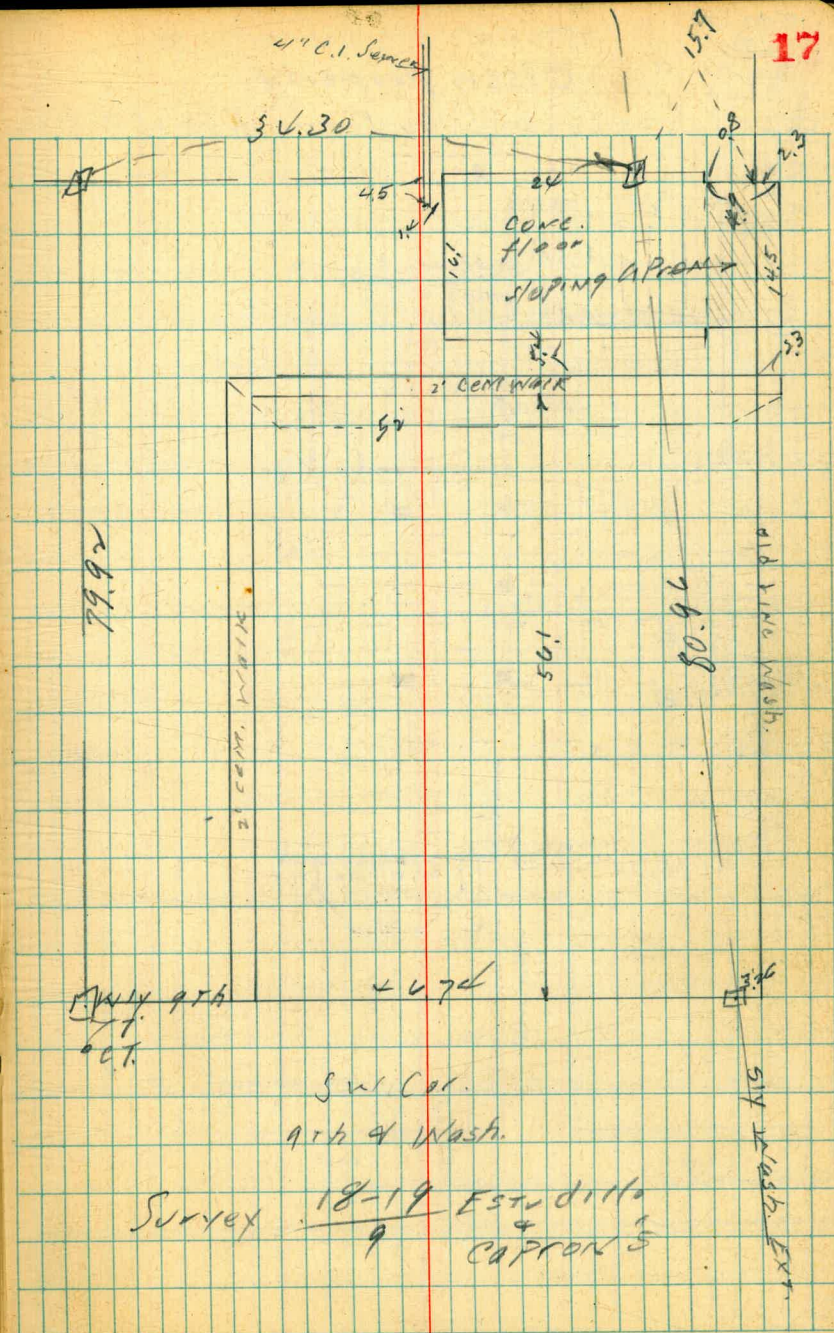 17
4" C.I. Sewer
15.7
34.30
0.8
2.3
24
4.5
conc.
floor
16.1
sloping apron
14.5
5.4
2.3
2' cem walk
52
79.92
2' cem. walk
56.1
80.96
old line Wash.
W'ly 9th
46.74
3.26
C.T.
S'ly Wash. Ext.
SW Cor.
9th & Wash.
Survey 18-19 Estudillo
9 &
Capron's